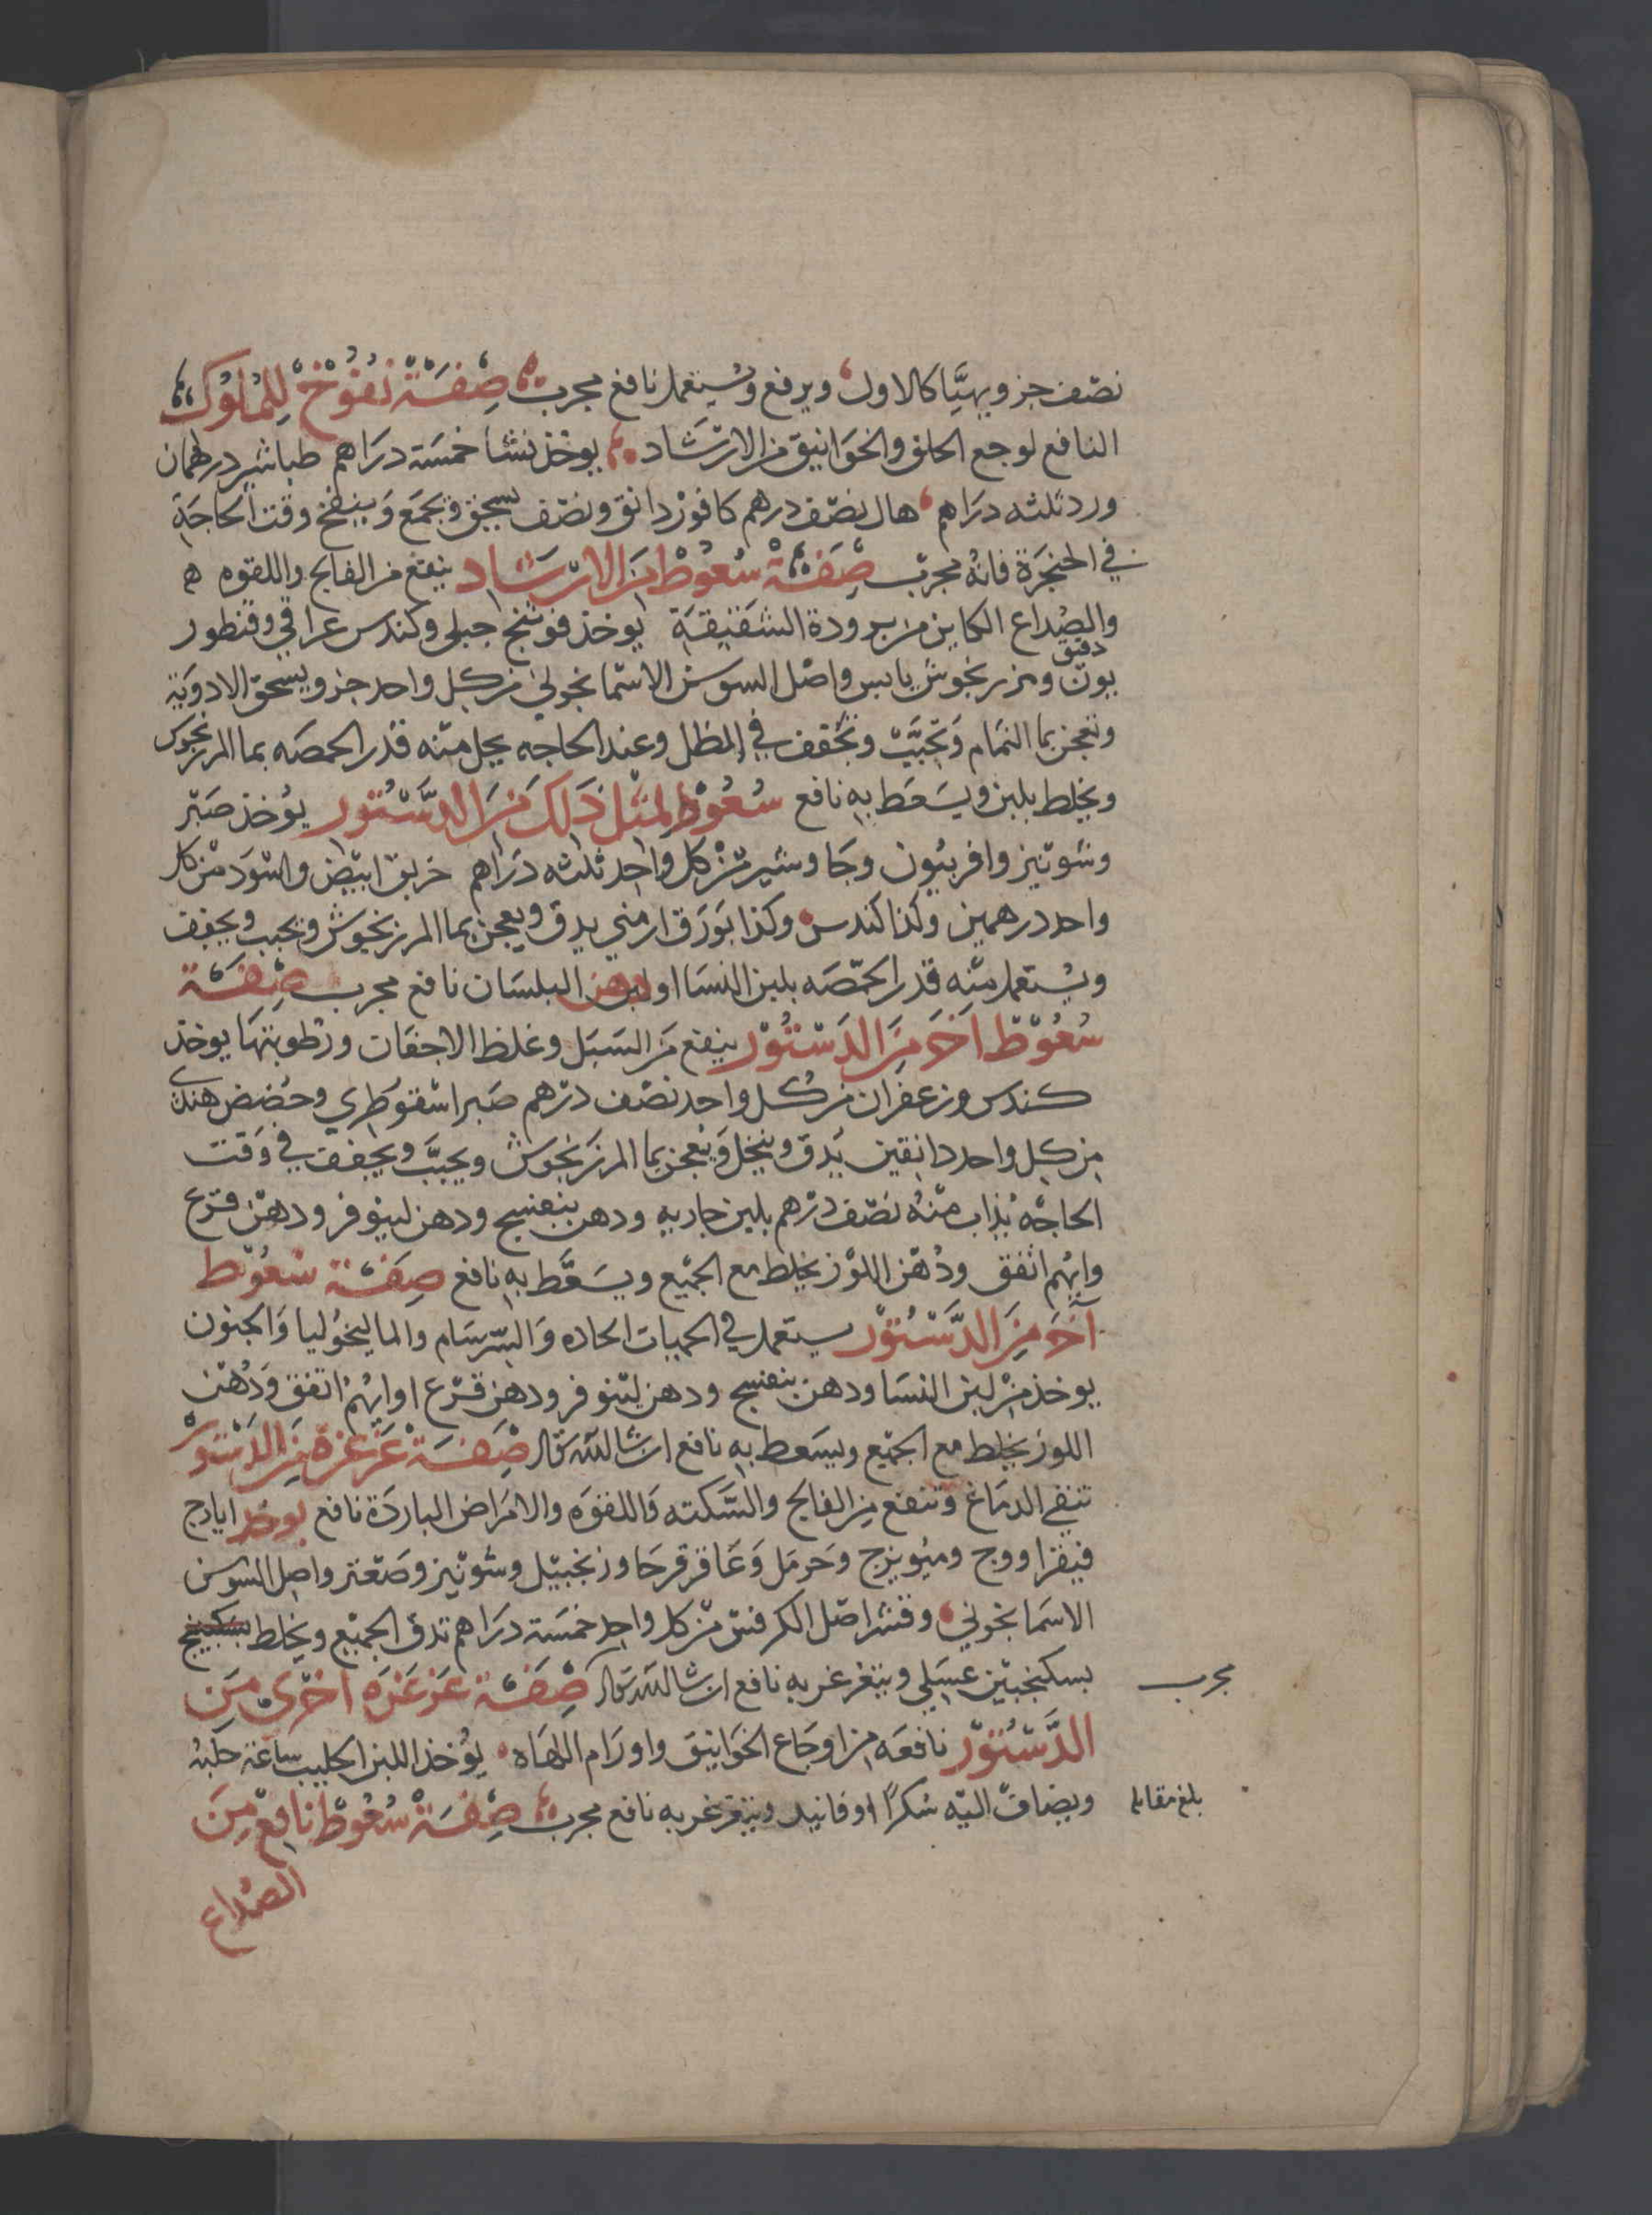 نصف جزو ويهيَّا كالاول ويرفع ويستعمل نافع مجرب صفة نفوخ للملوك
النافع لوجع الحلق والخوانيق من الارشاد يوخذ نشا خمسة دراهم طباشير درهمان
ورد ثلثه دراهم هال نصف درهم كافور دانق ونصف يسحق ويجمع وينفخ وقت الحاجة
في الحنجرة فانه مجرب صفة سعوط من الارشاد ينفع من الفالج واللقوه ه
والصداع الكاين من برودة الشقيقة يوخذ فوتنج جبلي وكندس عراقي وقنطور
يون دقيق ومرزنجوش يابس واصل السوسن الاسمانجوني من كل واحد جزو ويسحق الادوية
وتعجن بما النمام وتحبب وتجفف في الظل وعند الحاجه يحل منه قدر الحمصه بما المرزنجوش
ويخلط بلبن ويسعط به نافع سعوط لمثل ذلك من الدستور يوخذ صبر
وشونيز وافربيون وجاوشير من كل واحد ثلثه دراهم خربق ابيض واسود من كل
واحد درهمين وكذا كندس وكذا بورق ارمني يدق ويعجن بما المرزنجوش ويحبب ويجفف
ويستعمل منه قدر الحمصه بلبن النسا او دهن البلسان نافع مجرب صفة
سعوط اخر من الدستور ينفع من السبل وغلظ الاجفان ورطوبتها يوخذ
كندس وزعفران من كل واحد نصف درهم صبر اسقوطري وحضض هندي
من كل واحد دانقين يدق وينخل ويعجن بما المرزنجوش ويحبب ويجفف في وقت
الحاجه يذاب منه نصف درهم بلبن جاريه ودهن بنفسج ودهن لينوفر ودهن قرع
وايهم اتفق ودهن اللوز يخلط مع الجميع ويسعط به نافع صفة سعوط
آخر من الدستور يستعمل في الحميات الحاده والسرسام والماليخوليا والجنون
يوخذ من لبن النسا ودهن بنفسج ودهن لينوفر ودهن قرع او ايهم اتفق ودهن
اللوز يخلط مع الجميع ويسعط به نافع ان شا الله تعالى صفة غرغرة من الدستور
تنقي الدماغ وتنفع من الفالج والسكته واللقوه والامراض الباردة نافع يوخذ ايارج
فيقرا ووج وميويزج وحرمل وعاقرقرحا وزنجبيل وشونيز وصعتر واصل السوسن
الاسمانجوني وقشر اصل الكرفس من كل واحد خمسة دراهم تدق الجميع ويخلط بسكبينج
بسكنجبين عسلي ويتغرغر به نافع ان شا الله تعالى صفة غرغره اخرى من
مجرب
الدستور نافعه من اوجاع الخوانيق واورام اللهاه يوخذ اللبن الحليب ساعة حلبه
ويضاف اليه سكرًا او فانيد ويتغرغر به نافع مجرب صفة سعوط نافع من
بلغ مقابله
الصداع